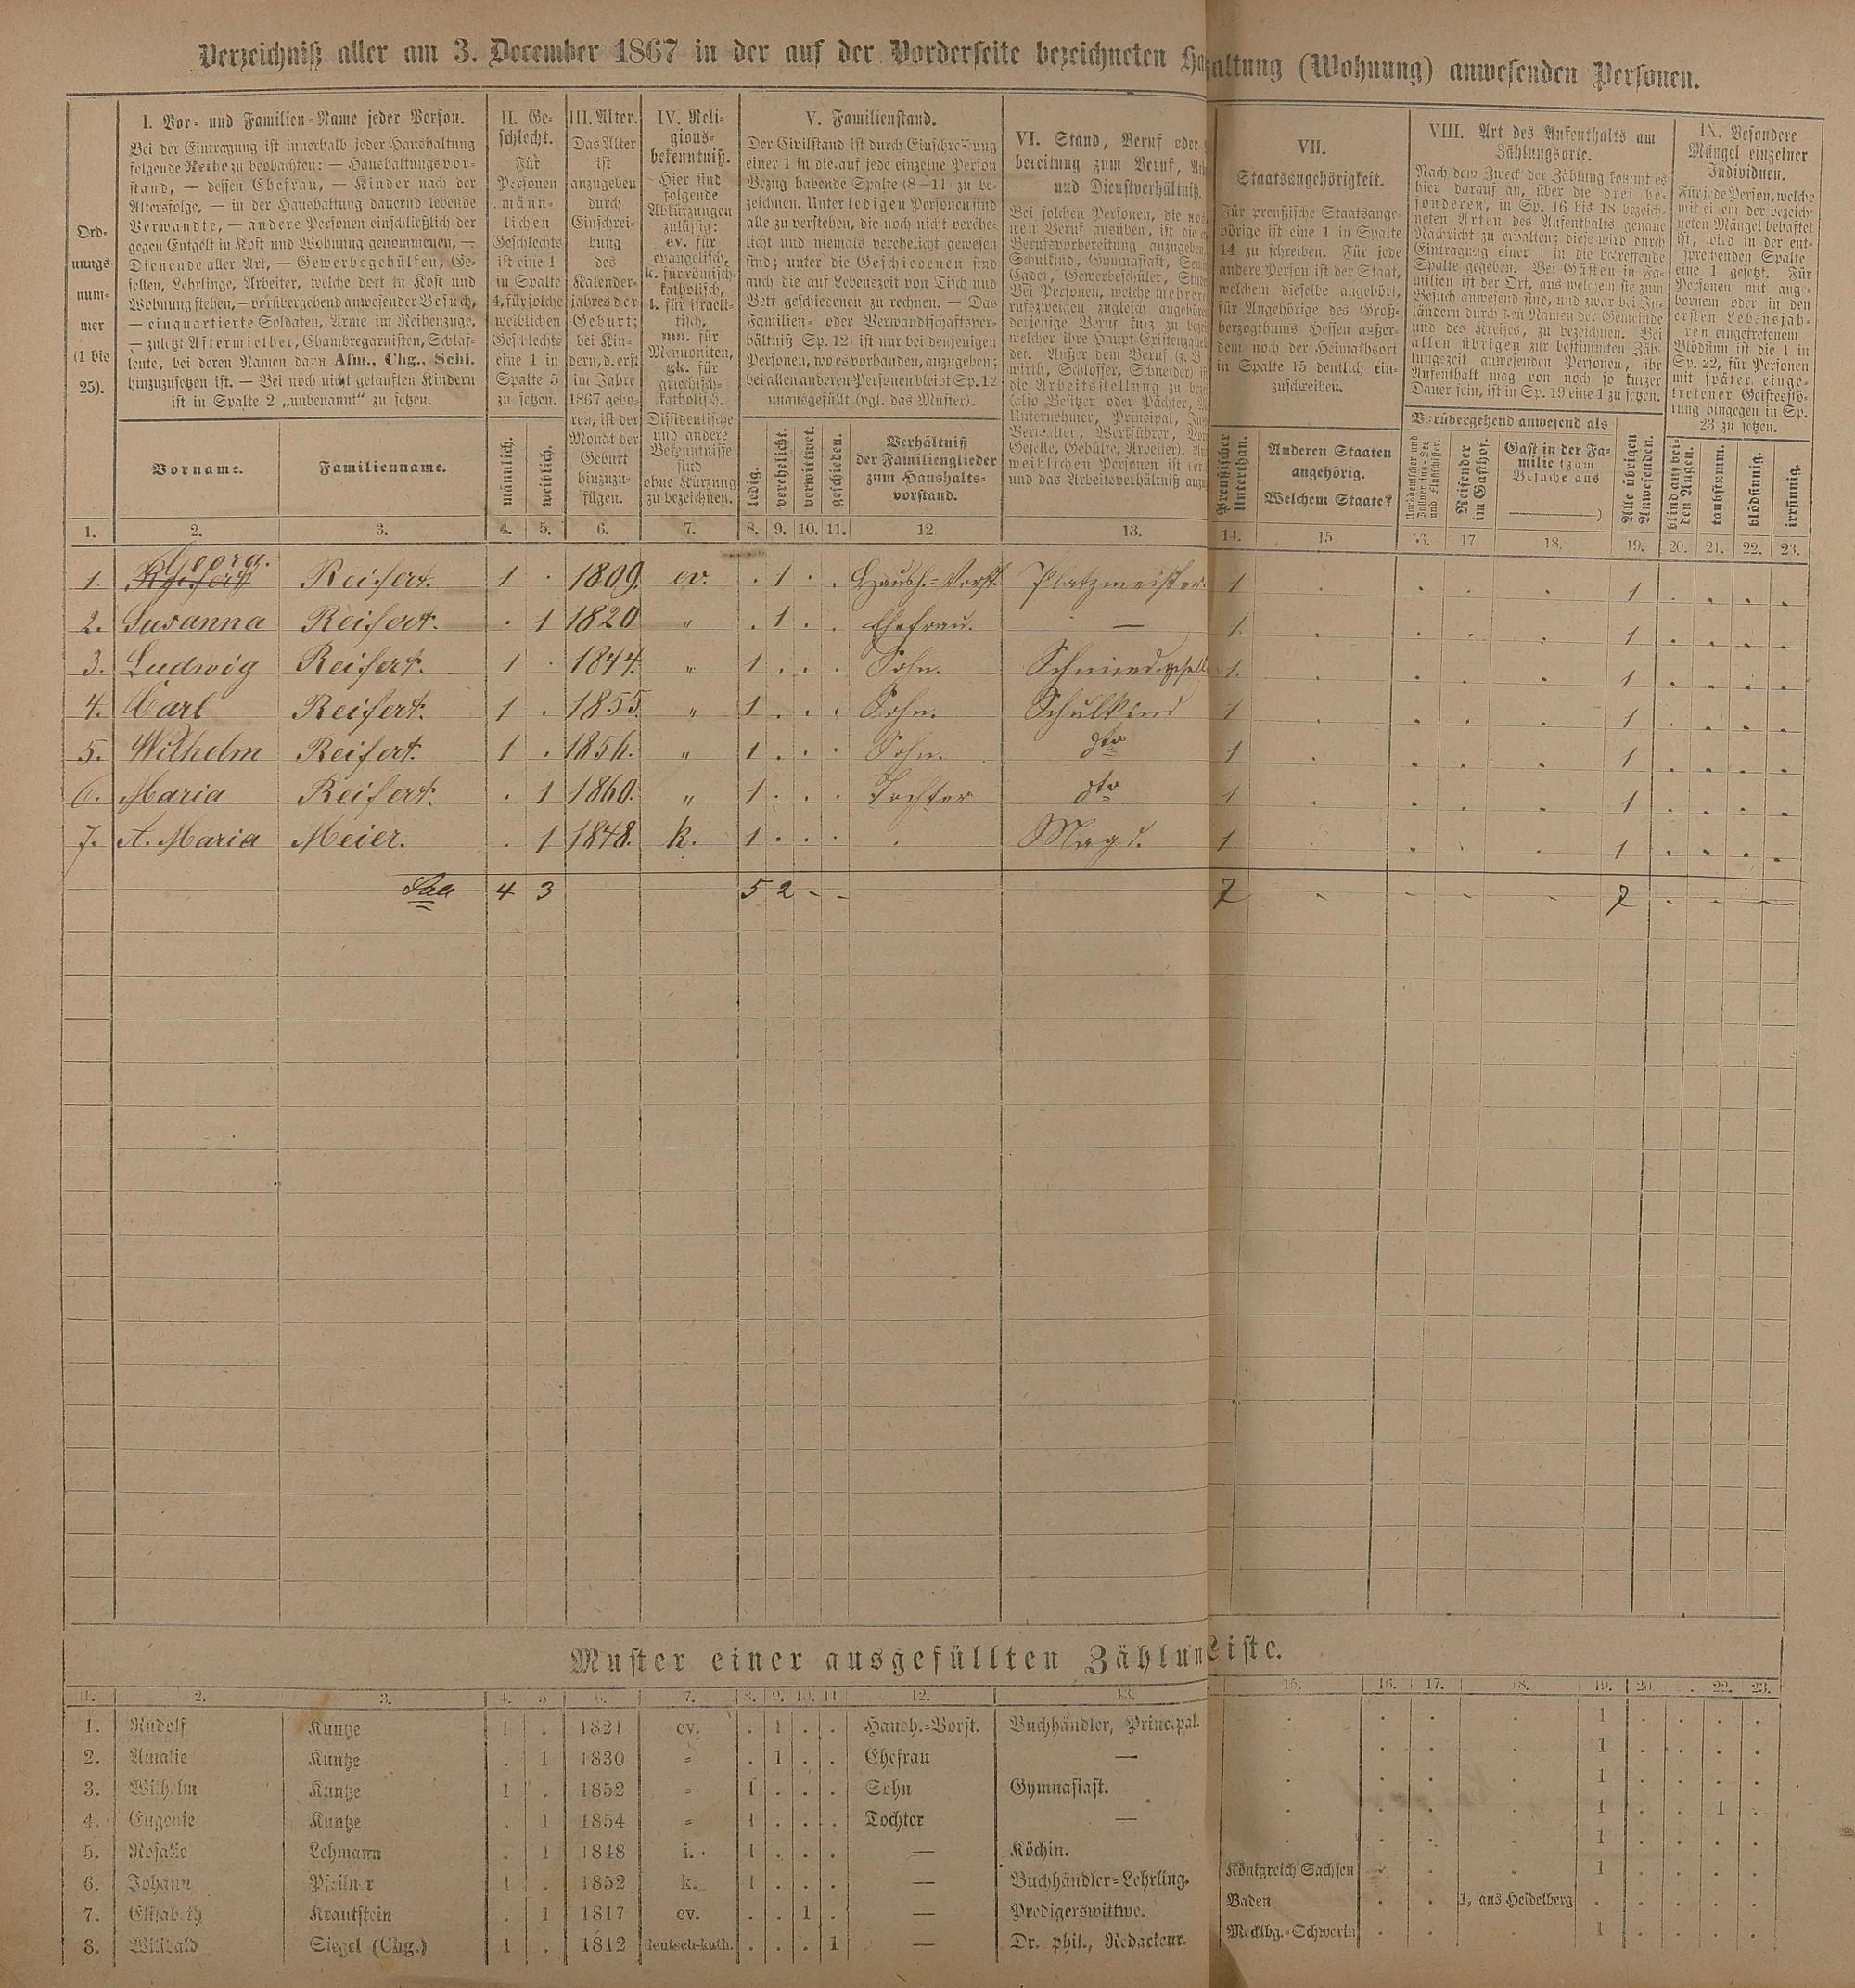 Verzeichniß aller am 3. December 1867 in der auf der Vorderseite bezeichneten Haushaltung (Wohnung) anwesenden Personen.
Ord-
nungs
num-
mer
(1 bis
25).
I. Vor- und Familien-Name jeder Person.
Bei der Eintragung ist innerhalb jeder Haushaltung
folgende Reihe zu beobachten: — Haushaltungsvor-
stand, — dessen Ehefrau, — Kinder nach der
Altersfolge, — in der Haushaltung dauernd lebende
Verwandte, — andere Personen einschließlich der
gegen Entgelt in Kost und Wohnung genommenen, —
Dienende aller Art, — Gewerbsgehülfen, Ge-
sellen, Lehrlinge, Arbeiter, welche dort in Kost und
Wohnung stehen, — vorübergehend anwesender Besuch,
— einquartierte Soldaten, Arme im Reihenzuge,
— zuletzt Aftermiether, Chambregarnisten, Schlaf-
leute, bei deren Namen dann Afm., Chg., Schl.
hinzuzusetzen ist. — Bei noch nicht getauften Kindern
ist in Spalte 2 „unbenannt" zu setzen.
Vorname.
Familienname.
II. Ge-
schlecht.
Für
Personen
männ-
lichen
Geschlechts
ist eine 1
in Spalte
4, für solche
weiblichen
Geschlechts
eine 1 in
Spalte 5
zu setzen.
männlich.
weiblich.
III. Alter.
Das Alter
ist
anzugeben
durch
Einschrei-
bung
des
Kalender-
jahres der
Geburt;
bei Kin-
dern, d. erst
im Jahre
1867 gebo-
ren, ist der
Monat der
Geburt
hinzuzu-
fügen.
IV. Reli-
gions-
bekenntniß.
Hier sind
folgende
Abkürzungen
zulässig:
ev. für
evangelisch,
k. für römisch-
katholisch,
i. für israeli-
tisch,
mn. für
Mennoniten,
gk. für
griechisch-
katholisch.
Dissidentische
und andere
Bekenntnisse
sind
ohne Kürzung
zu bezeichnen.
V. Familienstand.
Der Civilstand ist durch Einschreibung
einer 1 in die auf jede einzelne Person
Bezug habende Spalte (8—11) zu be-
zeichnen. Unter ledigen Personen sind
alle zu verstehen, die noch nicht verehe-
licht und niemals verehelicht gewesen
sind; unter die Geschiedenen sind
auch die auf Lebenszeit von Tisch und
Bett geschiedenen zu rechnen. — Das
Familien- oder Verwandtschaftsver-
hältniß Sp. 12 ist nur bei denjenigen
Personen, wo es vorhanden, anzugeben;
bei allen anderen Personen bleibt Sp. 12
unausgefüllt (vgl. das Muster).
ledig.
verehelicht.
verwittwet.
geschieden.
Verhältniß
der Familienglieder
zum Haushalts-
vorstand.
VI. Stand, Beruf oder
bereitung zum Beruf,
und Dienstverhältniß.
Bei solchen Personen, die
nen Beruf ausüben, ist die
Berufsvorbereitung anzugeben
Schulkind, Gymnasiast,
Cadet, Gewerbeschüler,
Bei Personen, welche mehreren
rufszweigen zugleich angehören
derjenige Beruf kurz zu
welcher ihre Haupt-Existenzquelle
det. Außer dem Beruf (z. B.
wirth, Schlosser, Schneider)
die Arbeitsstellung zu
(also Besitzer oder Pächter,
Unternehmer, Principal,
Verwalter, Werkführer,
Geselle, Gehülfe, Arbeiter).
weiblichen Personen ist
und das Arbeitsverhältniß
VII.
Staatsangehörigkeit.
Für preußische Staatsange-
hörige ist eine 1 in Spalte
14 zu schreiben. Für jede
andere Person ist der Staat,
welchem dieselbe angehört,
für Angehörige des Groß-
herzogthums Hessen außer-
dem noch der Heimathsort
in Spalte 15 deutlich ein-
zuschreiben.
Preußischer
Unterthan.
Anderen Staaten
angehörig.
Welchem Staate?
VIII. Art des Aufenthalts am
Zählungsorte.
Nach dem Zweck der Zählung kommt es
hier darauf an, über die drei be-
sonderen, in Sp. 16 bis 18 bezeich-
neten Arten des Aufenthalts genaue
Nachricht zu erhalten; diese wird durch
Eintragung einer 1 in die betreffende
Spalte gegeben. Bei Gästen in Fa-
milien ist der Ort, aus welchem sie zum
Besuch anwesend sind, und zwar bei In-
ländern durch den Namen der Gemeinde
und des Kreises, zu bezeichnen. Bei
allen übrigen zur bestimmten Zäh-
lungszeit anwesenden Personen, ihr
Aufenthalt mag von noch so kurzer
Dauer sein, ist in Sp. 19 eine 1 zu setzen.
Vorübergehend anwesend als
Norddeutscher und
Zollver.ins-See-
und Flußschiffer.
Reisender
im Gasthof.
Gast in der Fa-
milie (zum
Besuche aus
)
Alle übrigen
Anwesenden.
IX. Besondere
Mängel einzelner
Individuen.
Für jede Person, welche
mit einem der bezeich-
neten Mängel behaftet
ist, wird in der ent-
sprechenden Spalte
eine 1 gesetzt. Für
Personen mit ange-
bornem oder in den
ersten Lebensjah-
ren eingetretenem
Blödsinn ist die 1 in
Sp. 22, für Personen
mit später einge-
tretener Geistesstö-
rung hingegen in Sp.
23 zu setzen.
blind auf bei-
den Augen.
taubstumm.
blödsinnig.
irrsinnig.
1. 2. 3. 4. 5. 6. 7. 8. 9. 10. 11. 12. 13. 14. 15 16. 17 18. 19. 20. 21. 22. 23.
Georg.
1. Reifert. 1 . 1809. ev. . 1 . . Haush.-Vorst. Platzmeister. 1 . . . . 1 . . . .
2. Susanna Reifert. . 1 1820 " . 1 . . Ehefrau. — 1. . . . . 1 . . . .
3. Ludwig Reifert. 1 . 1844. " 1 . . . Sohn. Schmiedgesell 1. . . . . 1 . . . .
4. Carl Reifert. 1 . 1855. " 1 . . . Sohn. Schulkind 1 . . . . 1 . . . .
5. Wilhelm Reifert. 1 . 1856. " 1 . . . Sohn. dto 1 . . . . 1 . . . .
6. Maria Reifert. . 1 1860. " 1 . . . Tochter dto 1 . . . . 1 . . . .
7. A. Maria Meier. . 1 1848. k. 1 . . . . Magd. 1 . . . . 1 . . . .
4 3 5 2 - - 7 - - - - 7 - - - -
Muster einer ausgefüllten Zählun Liste.
1. 2. 3. 4. 5 6. 7. 8. 9. 10. 11 12. 13. 15. 16. 17. 18. 19. 20. . 22. 23.
1. Rudolf Kuntze 1 . 1821 ev. . 1 . . Haush.-Vorst. Buchhändler, Principal. . . . . 1 . . . .
2. Amalie Kuntze . 1 1830 = . 1 . . Ehefrau — . . . . 1 . . . .
3. Wilhelm Kuntze 1 . 1852 = 1 . . . Sohn Gymnasiast. . . . . 1 . . . .
4. Eugenie Kuntze . 1 1854 = 1 . . . Tochter — . . . . 1 . . 1 .
5. Rosalie Lehmann . 1 1848 i. 1 . . . — Köchin. . . . . 1 . . . .
6. Johann Pfeilner 1 . 1852 k. 1 . . . — Buchhändler-Lehrling. Königreich Sachsen . . . 1 . . . .
7. Elisabeth Krautstein . 1 1817 ev. . . 1 . — Predigerswittwe. Baden . . 1, aus Heidelberg . . . . .
8. Willibald Siegel (Chg.) 1 . 1812 deutsch-kath. . . . 1 — Dr. phil., Redacteur. Mecklbg.-Schwerin . . . 1 . . . .